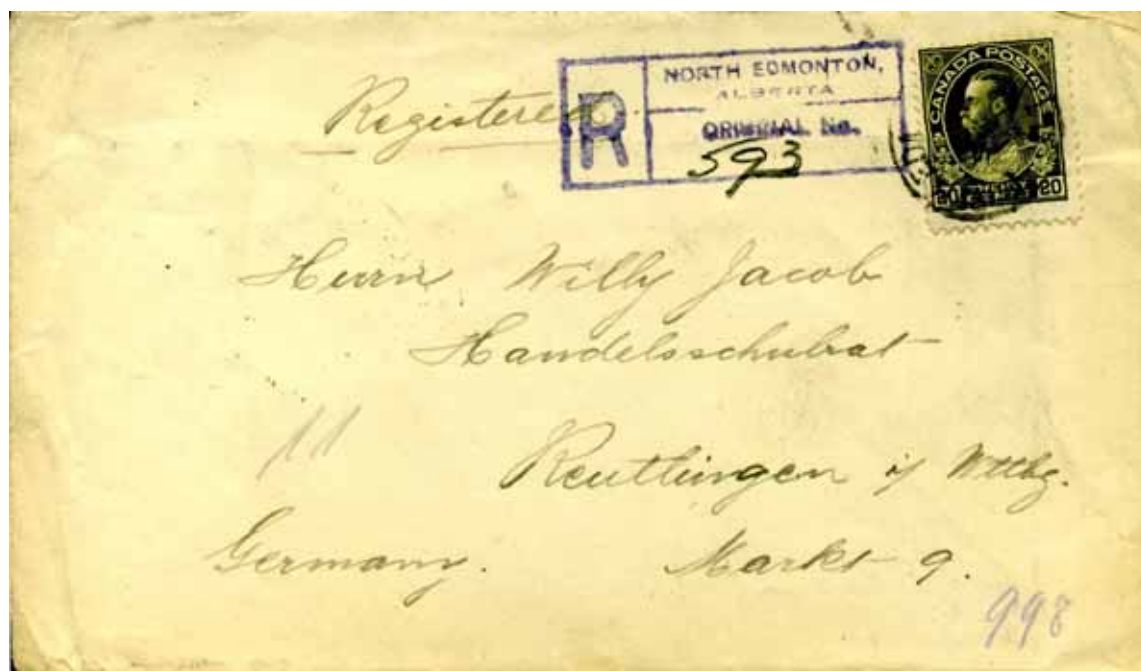 Registered.
R
NORTH EDMONTON,
ALBERTA
ORIGINAL No.
593
CANADA POSTAGE
20 20
Herrn Willy Jacob
Handelsschulrat
Reutlingen i/ Wttbg.
Germany. Markt 9.
11
998